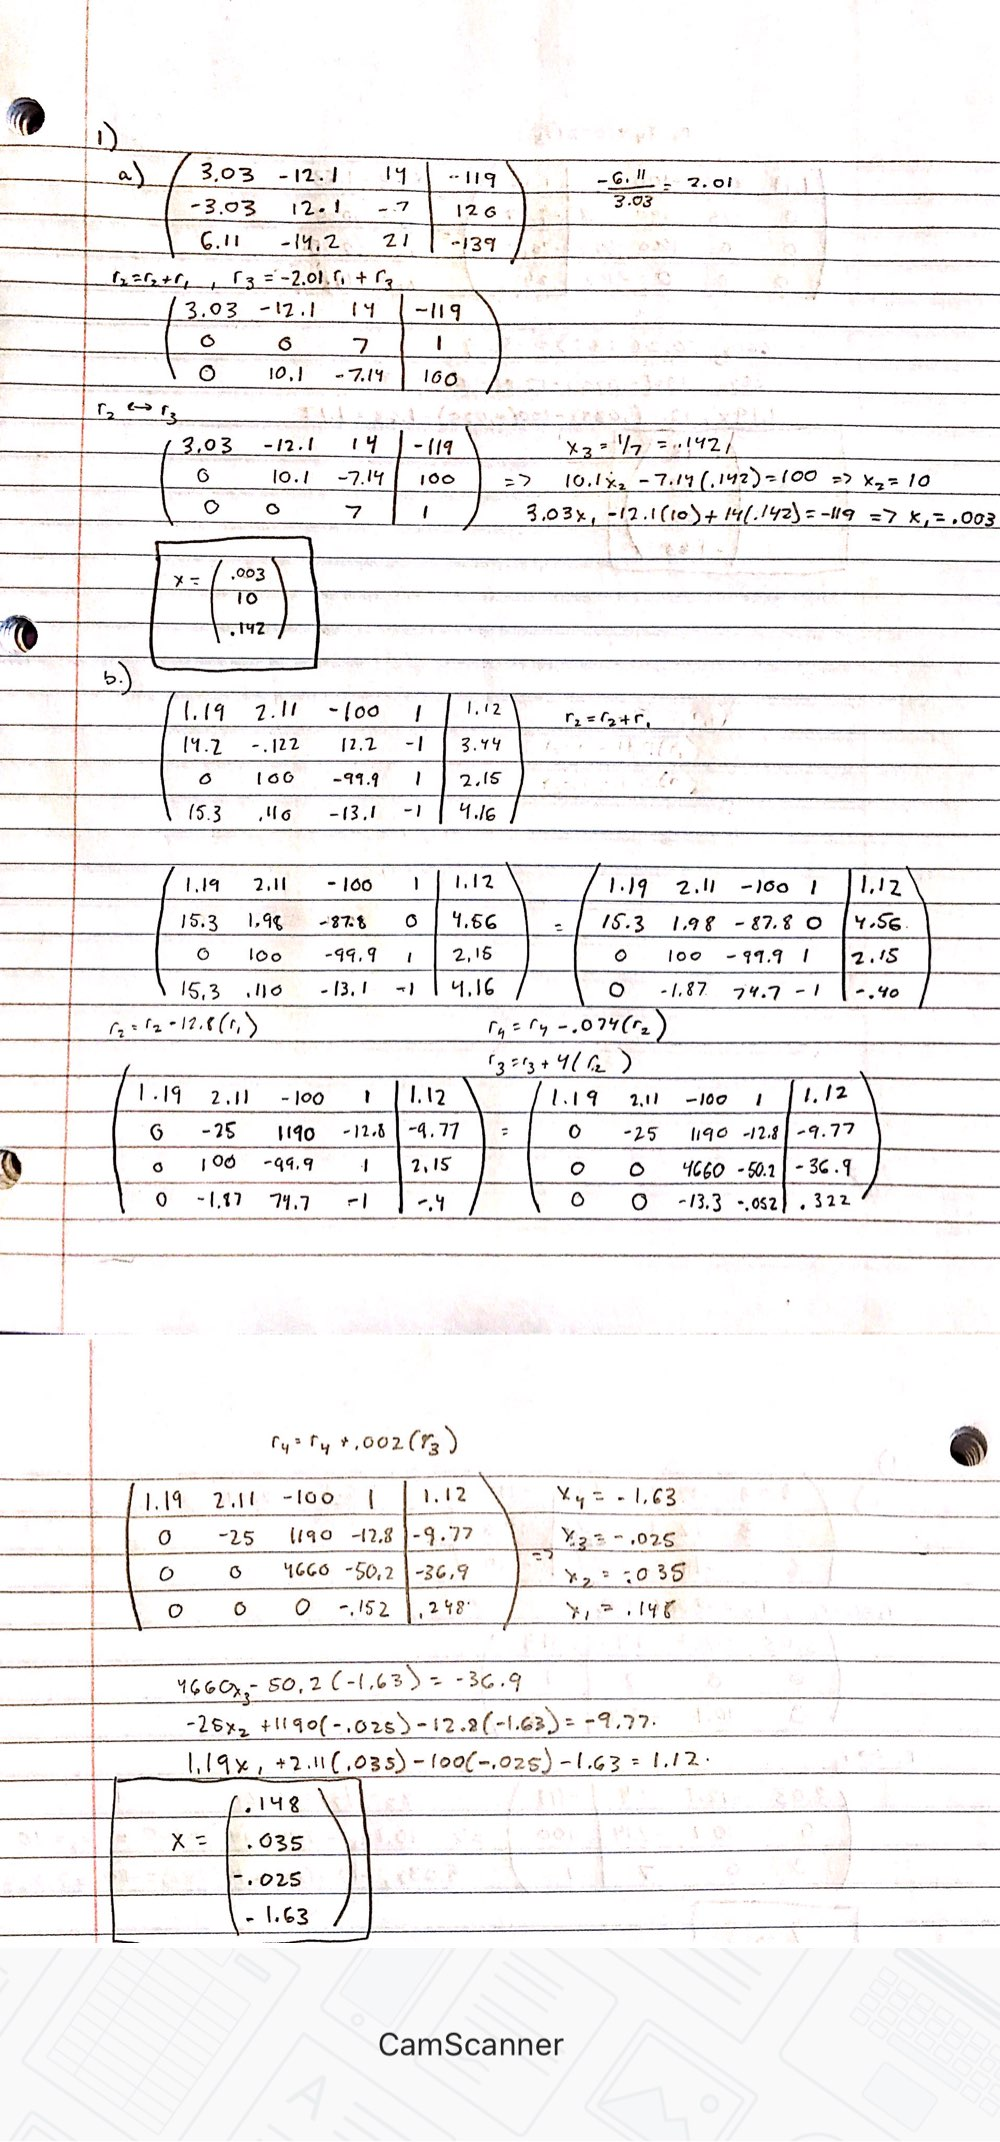 1)
a) 3.03 -12.1 14 | -119
-3.03 12.1 -7 | 120
6.11 -14.2 21 | -139
-6.11/3.03 = 2.01
r2=r2+r1, r3=-2.01 r1+r3
3.03 -12.1 14 | -119
0 0 7 | 1
0 10.1 -7.14 | 100
r2 ↔ r3
3.03 -12.1 14 | -119
0 10.1 -7.14 | 100
0 0 7 | 1
x3 = 1/7 = .142
=> 10.1x2 - 7.14(.142)=100 => x2 = 10
3.03x1 -12.1(10)+14(.142)=-119 => x1=.003
x = (.003
10
.142)
b.)
1.19 2.11 -100 1 | 1.12
14.2 -.122 12.2 -1 | 3.44
0 100 -99.9 1 | 2.15
15.3 .110 -13.1 -1 | 4.16
r2=r2+r1
1.19 2.11 -100 1 | 1.12
15.3 1.98 -87.8 0 | 4.56
0 100 -99.9 1 | 2.15
15.3 .110 -13.1 -1 | 4.16
=
1.19 2.11 -100 1 | 1.12
15.3 1.98 -87.8 0 | 4.56
0 100 -99.9 1 | 2.15
0 -1.87 74.7 -1 | -.40
r2=r2-12.8(r1)
r4=r4-.074(r2)
r3=r3+4(r2)
1.19 2.11 -100 1 | 1.12
0 -25 1190 -12.8 | -9.77
0 100 -99.9 1 | 2.15
0 -1.87 74.7 -1 | -.4
=
1.19 2.11 -100 1 | 1.12
0 -25 1190 -12.8 | -9.77
0 0 4660 -50.2 | -36.9
0 0 -13.3 -.052 | .322
r4=r4+.002(r3)
1.19 2.11 -100 1 | 1.12
0 -25 1190 -12.8 | -9.77
0 0 4660 -50.2 | -36.9
0 0 0 -.152 | .248
=>
x4 = -1.63
x3 = -.025
x2 = .035
x1 = .148
4660x3 - 50.2(-1.63) = -36.9
-25x2 +1190(-.025)-12.8(-1.63)=-9.77.
1.19x1 +2.11(.035)-100(-.025)-1.63=1.12.
x = (.148
.035
-.025
-1.63)
CamScanner